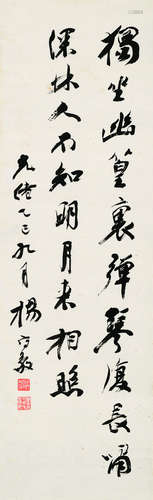 獨坐幽篁裏彈琴復長嘯
深林人不知明月來相照
光緒乙三九月楊守敬